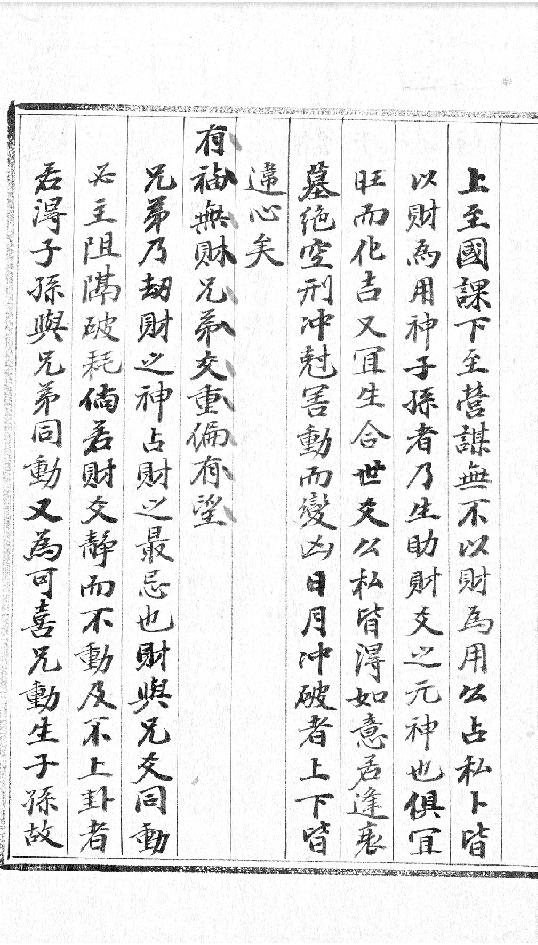 上至國課下至營謀無不以財為用公占私卜皆
以財為用神子孫者乃生助財爻之元神也俱冝
旺而化吉又冝生合世爻公私皆淂如意若逢衰
墓絕空刑冲尅害動而變凶日月冲破者上下皆
違心矣
有福無財兄弟交重偏有望
兄弟乃劫財之神占財之最忌也財與兄爻同動
必主阻隔破耗倘若財爻靜而不動及不上卦者
若淂子孫與兄弟同動又為可喜兄動生子孫故